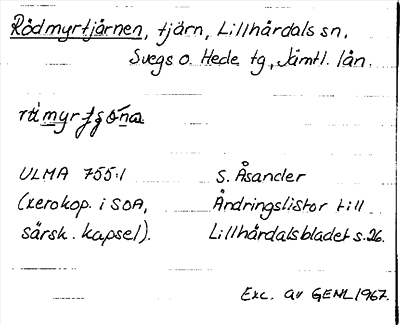 Rödmyrtjärnen, tjärn, Lillhärdals sn,
Svegs o. Hede tg, Jämtl. län.
ULMA 755:1
(xerokop. i SOA,
särsk. kapsel).
S. Åsander
Ändringslistor till
Lillhärdalsbladet s. 26.
Exc. av GENL 1967.